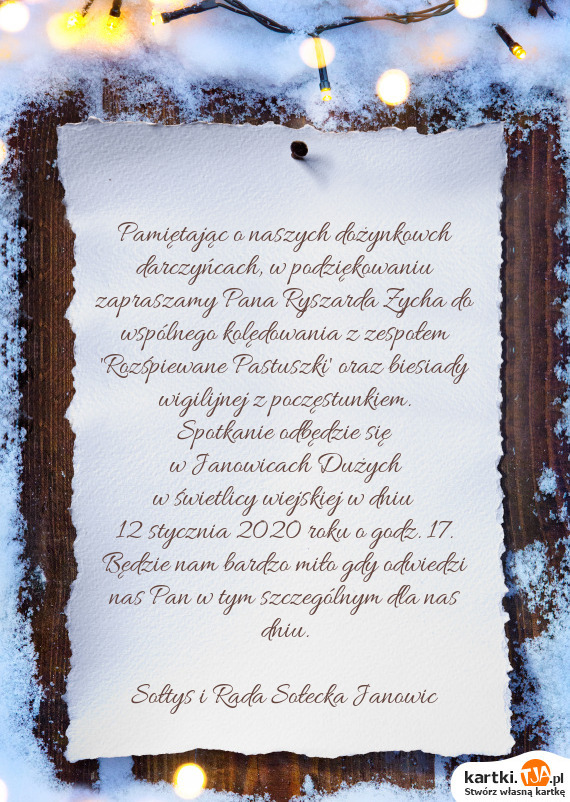 Pamiętając o naszych dożynkowch
darczyńcach, w podziękowaniu
zapraszamy Pana Ryszarda Zycha do
wspólnego kolędowania z zespołem
"Rozśpiewane Pastuszki' oraz biesiady
wigilijnej z poczęstunkiem.
Spotkanie odbędzie się
w Janowicach Dużych
w świetlicy wiejskiej w dniu
12 stycznia 2020 roku o godz. 17.
Będzie nam bardzo miło gdy odwiedzi
nas Pan w tym szczególnym dla nas
dniu.
Sołtys i Rada Sołecka Janowic
kartki.TJA.pl
Stwórz własną kartkę